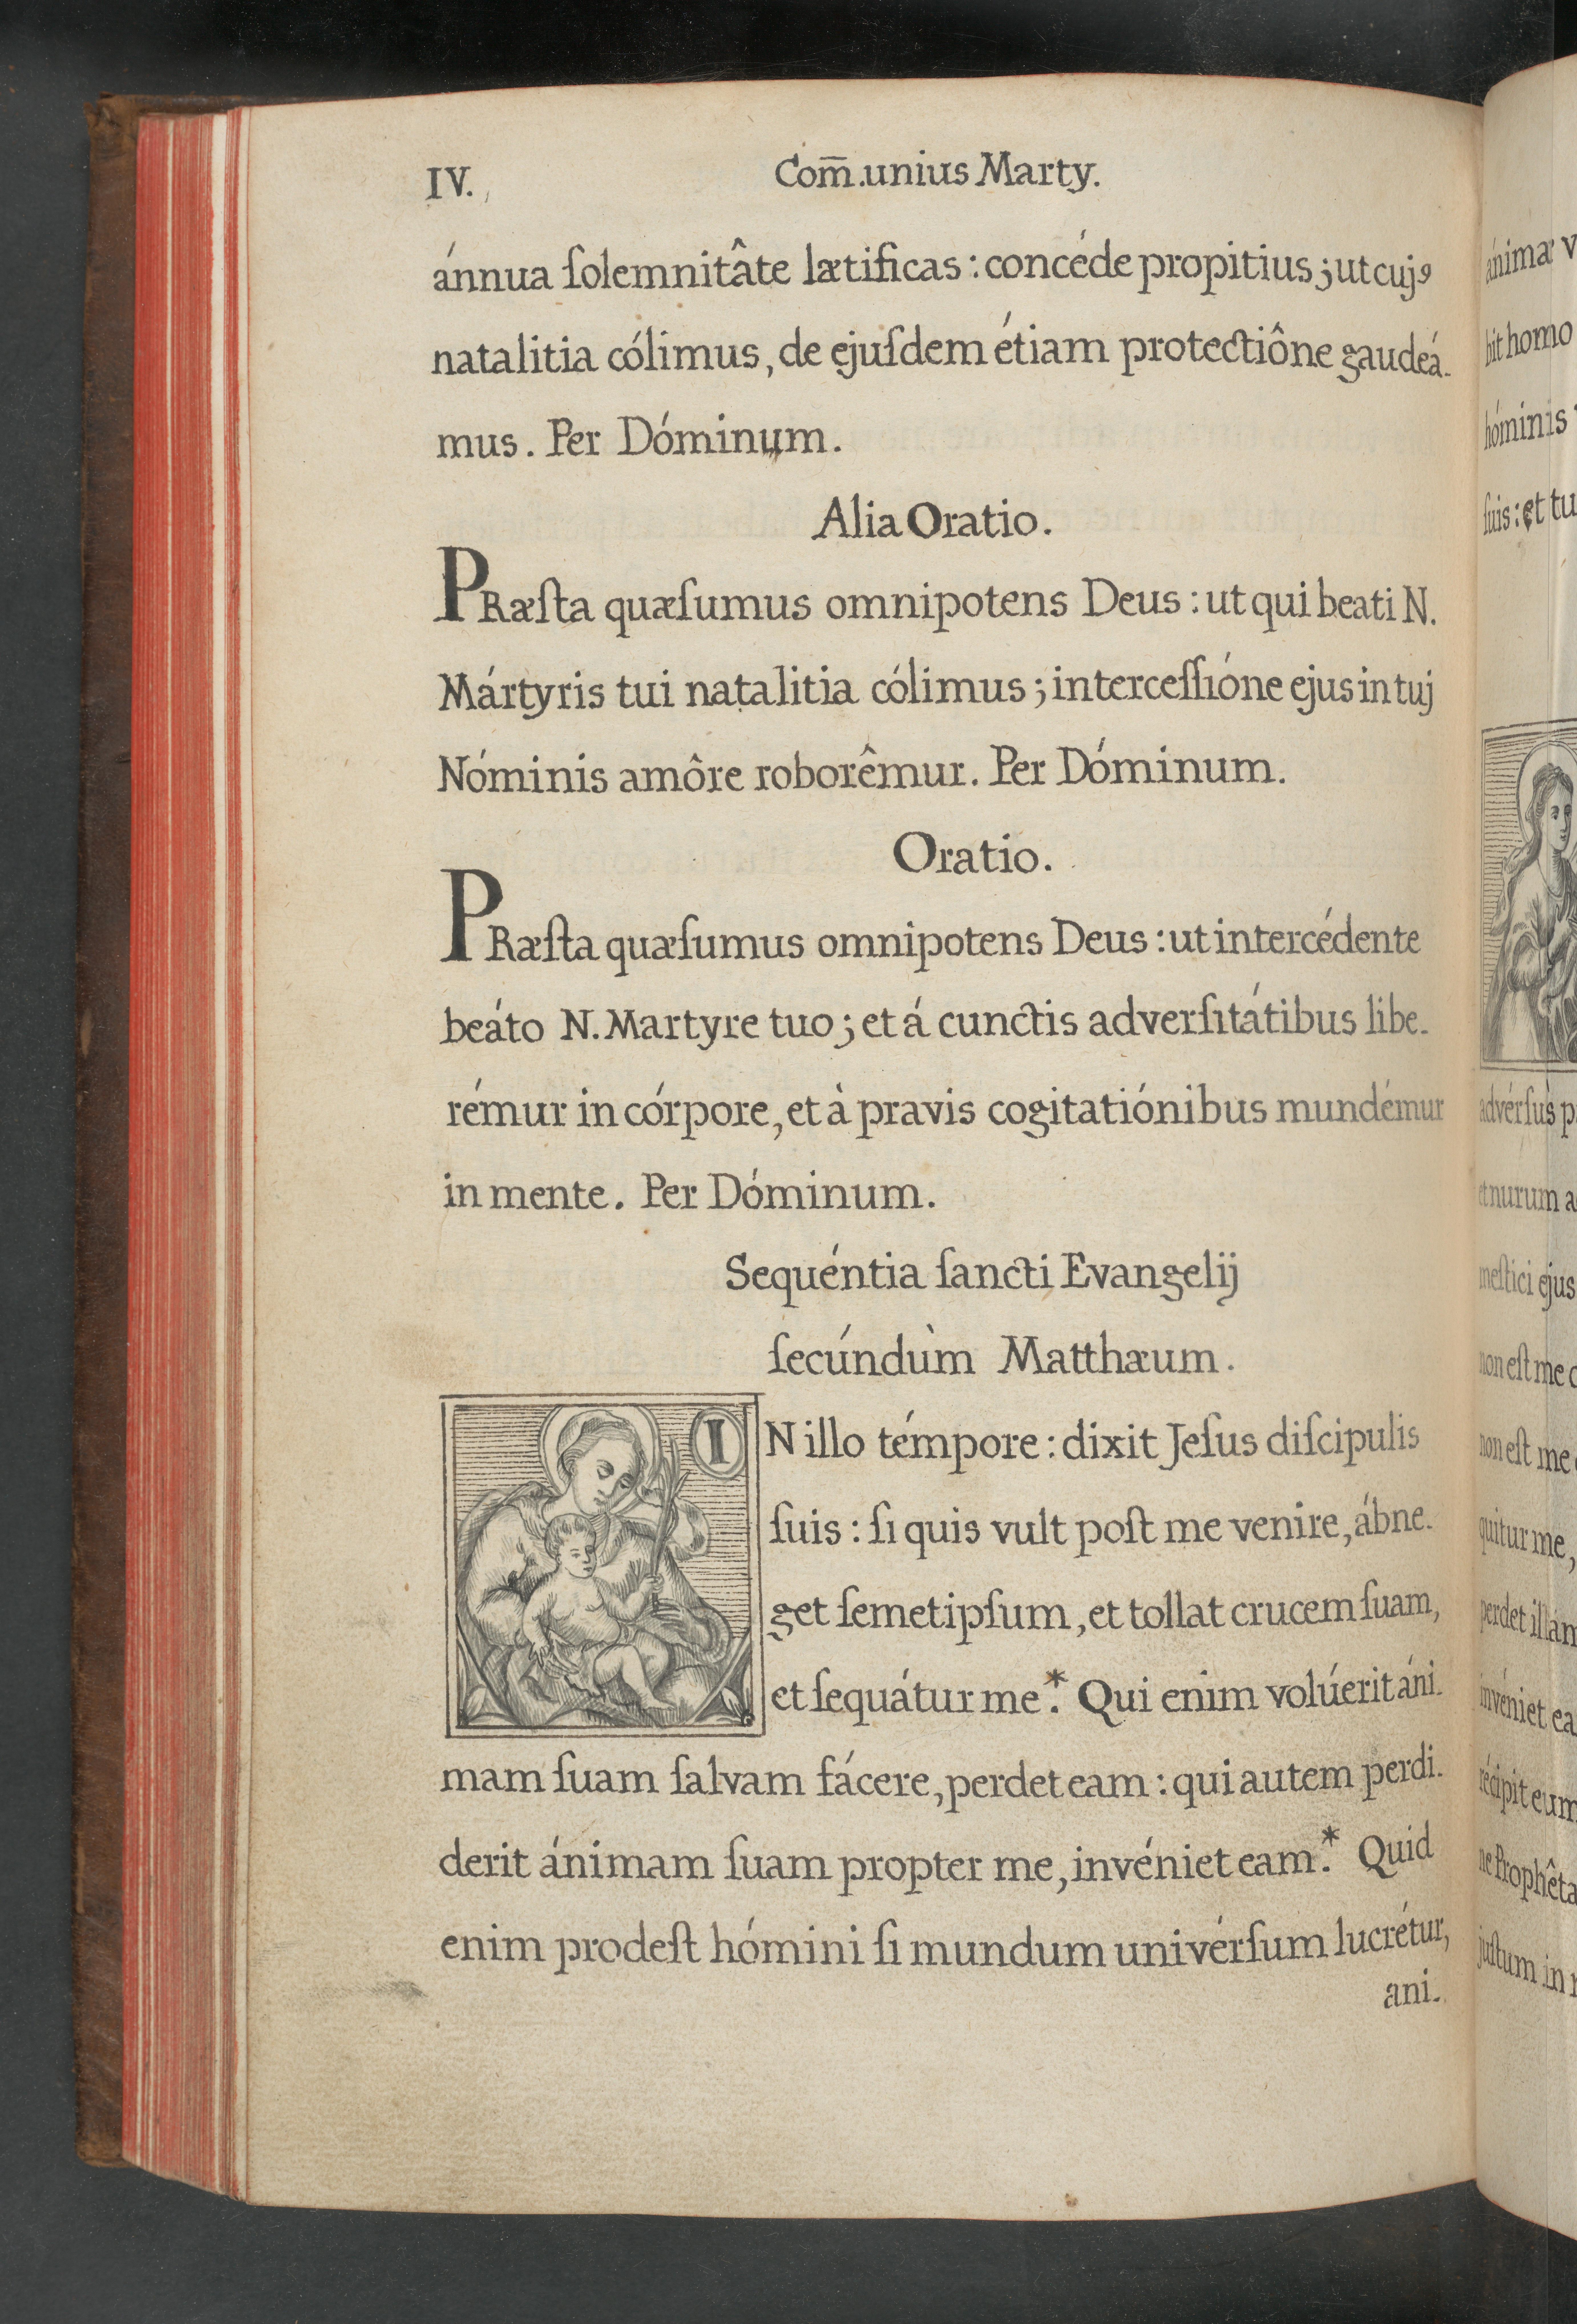 IV.
Com̄.unius Marty.
ánnua ſolemnitâte lætificas : concéde propitius ; ut cujꝰ
natalitia cólimus, de ejuſdem étiam protectiône gaudeá-
mus. Per Dóminum.
Alia Oratio.
PRæſta quæſumus omnipotens Deus : ut qui beati N.
Mártyris tui natalitia cólimus ; interceſſióne ejus in tuj
Nóminis amôre roborêmur. Per Dóminum.
Oratio.
PRæſta quæſumus omnipotens Deus : ut intercédente
beáto N. Martyre tuo ; et á cunctis adverſitátibus libe-
rémur in córpore, et à pravis cogitatiónibus mundémur
in mente. Per Dóminum.
Sequéntia ſancti Evangelij
ſecúndùm Matthæum.
IN illo témpore : dixit Jeſus diſcipulis
ſuis : ſi quis vult poſt me venire, ábne-
get ſemetipſum, et tollat crucem ſuam,
et ſequátur me.* Qui enim volúerit áni-
mam ſuam ſalvam fácere, perdet eam : qui autem perdi-
derit ánimam ſuam propter me, invéniet eam.* Quid
enim prodeſt hómini ſi mundum univérſum lucrétur,
ani-
ánimæ v
bit homo
hóminis
ſuis : et tu
advérſùs p
et nurum a
meſtici ejus
non eſt me
non eſt me
quitur me,
perdet illam
invéniet ea
récipit eum
ne Prophêta
juſtum in